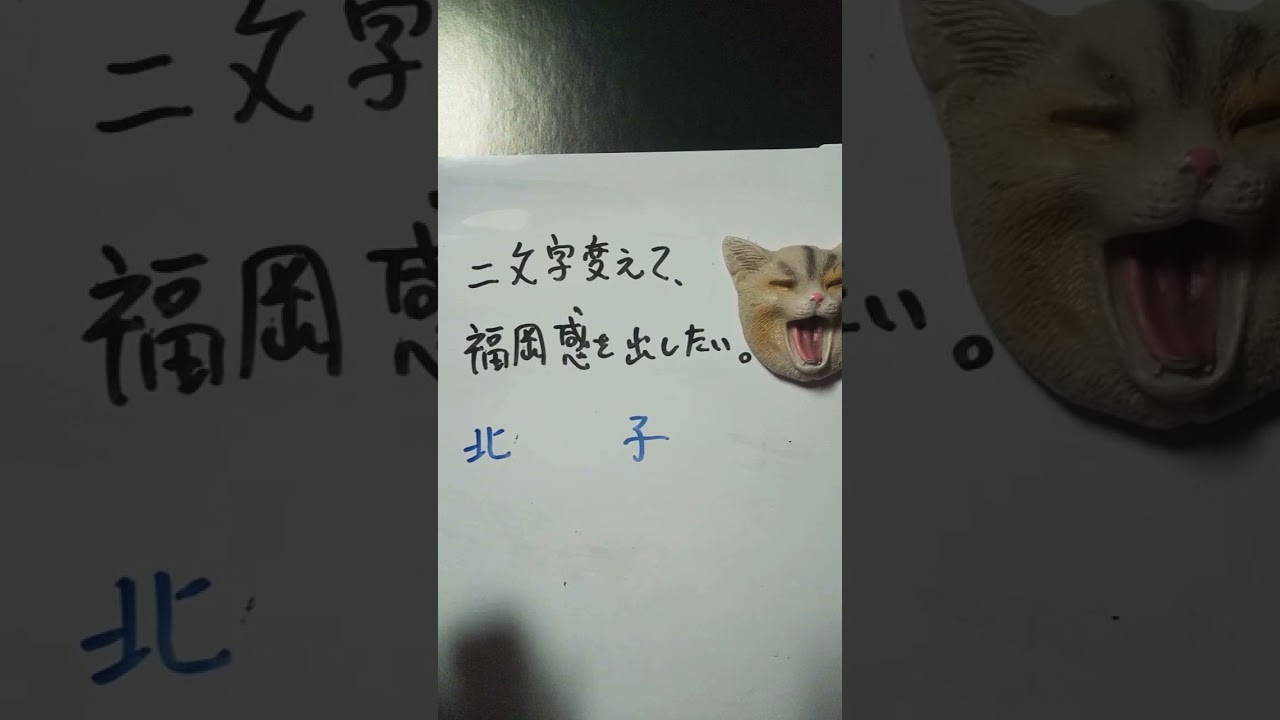 二文字変えて、
福岡感を出したい。
北 子